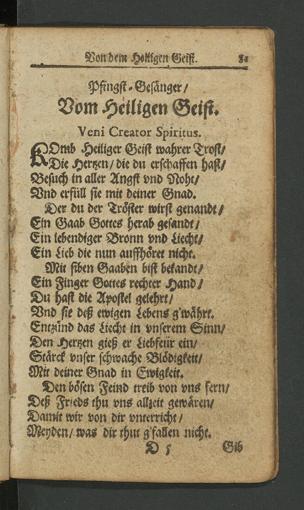 Von dem Heiligen Geist. 81
Pfingst-Gesänger/
Vom Heiligen Geist.
Veni Creator Spiritus.
KOmb Heiliger Geist wahrer Trost/
Die Hertzen/ die du erschaffen hast/
Besuch in aller Angst vnd Noht/
Vnd erfüll sie mit deiner Gnad.
Der du der Tröster wirst genandt/
Ein Gaab Gottes herab gesandt/
Ein lebendiger Bronn vnd Liecht/
Ein Lieb die nun auffhöret nicht.
Mit siben Gaaben bist bekandt/
Ein Finger Gottes rechter Hand/
Du hast die Apostel gelehrt/
Vnd sie deß ewigen Lebens g'währt.
Entzünd das Liecht in vnserem Sinn/
Den Hertzen gieß er Liebfeür ein/
Stärck vnser schwache Blödigkeit/
Mit deiner Gnad in Ewigkeit.
Den bösen Feind treib von vns fern/
Deß Frieds thu vns allzeit gewären/
Damit wir von dir vnterricht/
Meyden/ was dir thut g'fallen nicht.
D 5 Gib